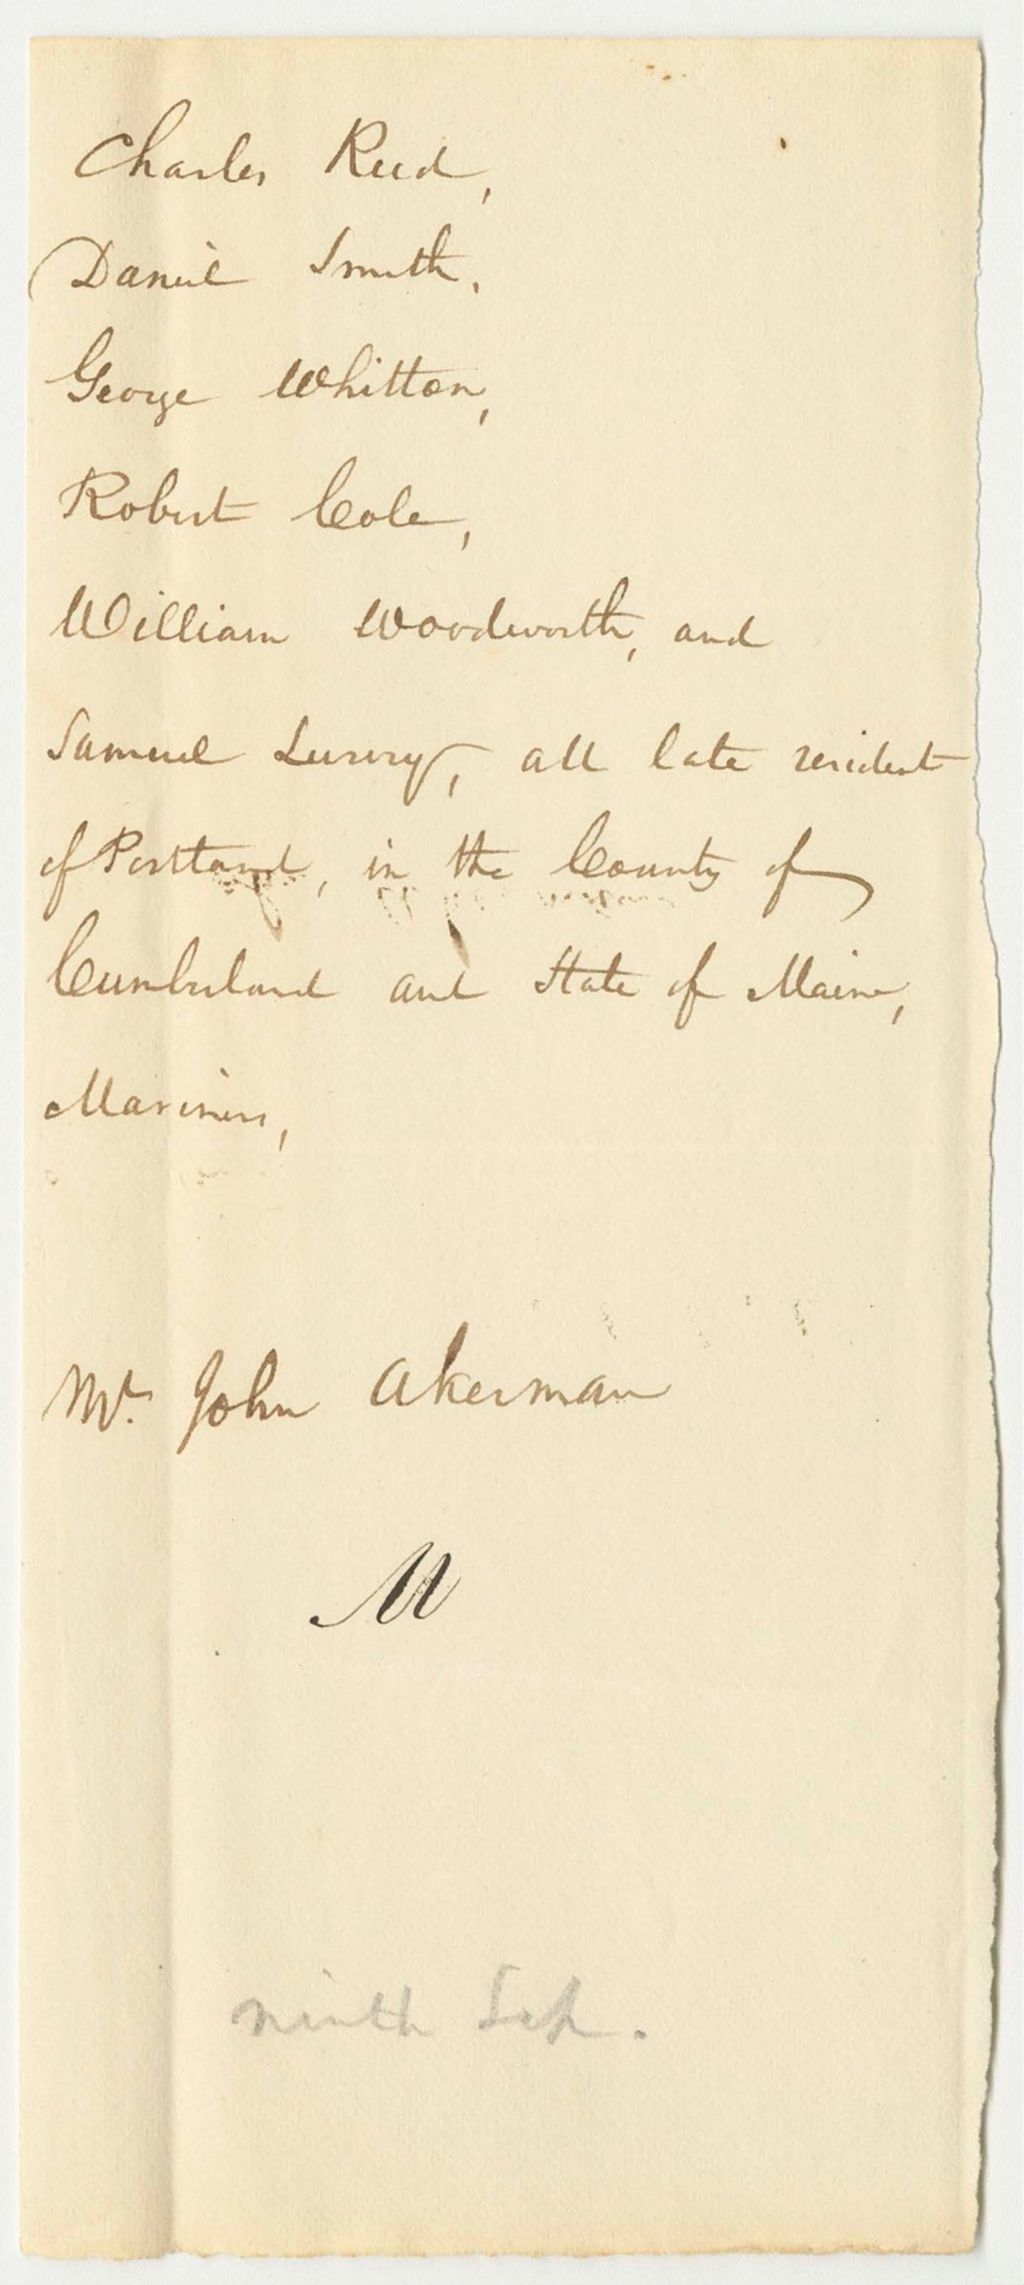 Charles Reed,
Daniel Smith.
George Whitton,
Robert Cole,
William Woodworth, and
Samuel all late resident
of Portland, in the County of
Cumberland and State of Maine,
Mariners,
Mr. John Akerman
M
ninth Sep.